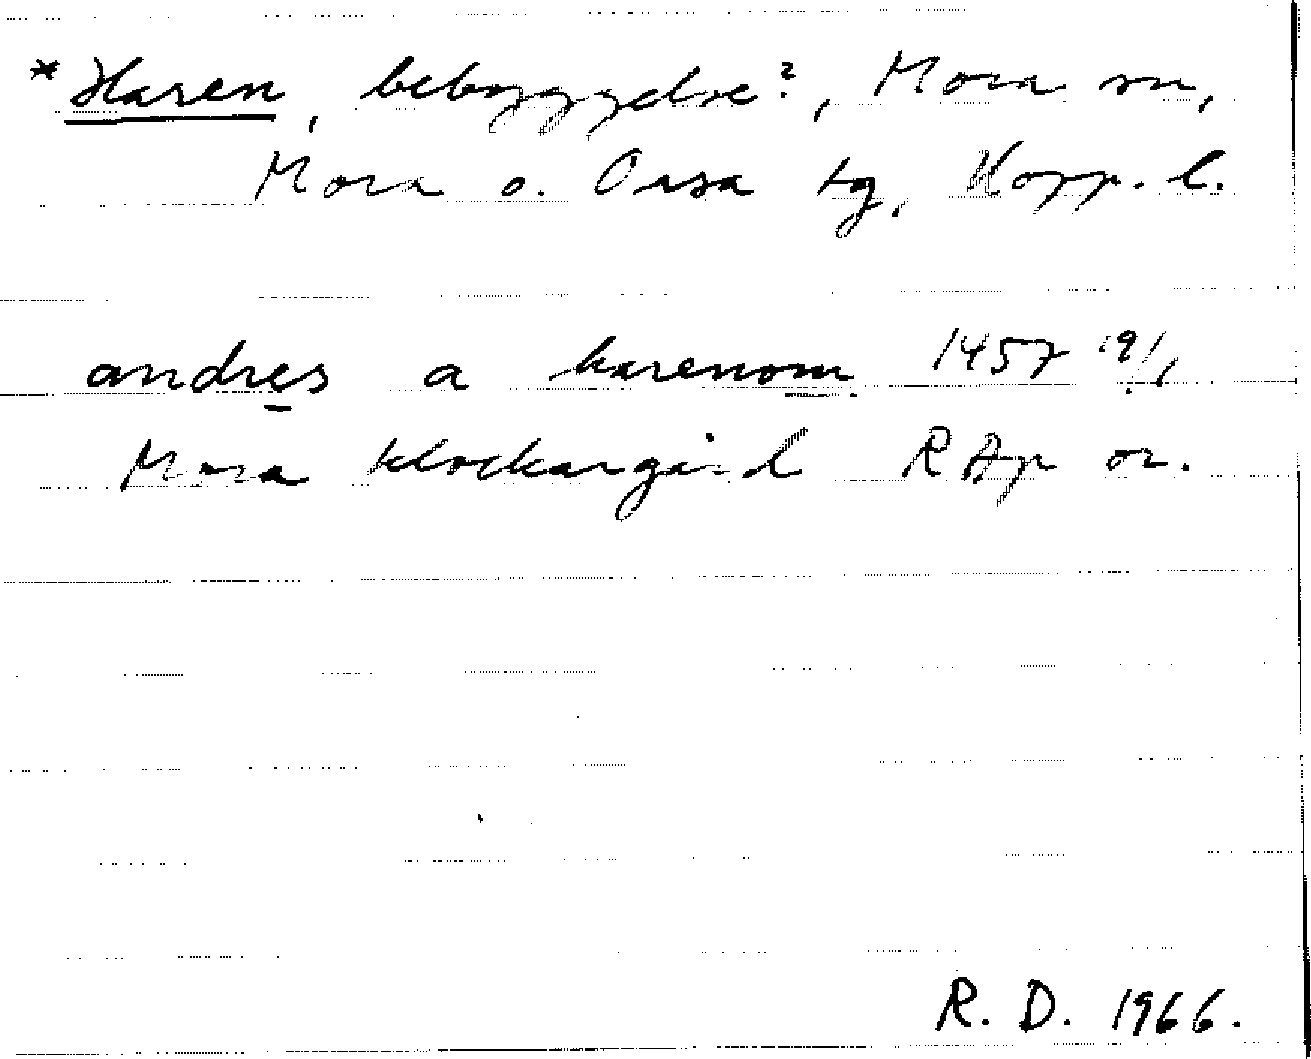 *Haren, bebyggelse?, Mora sn,
Mora o. Orsa tg, Kopp. l.
andres a harenom 1457 19/1
Mora klockargård RAp or.
R. D. 1966.